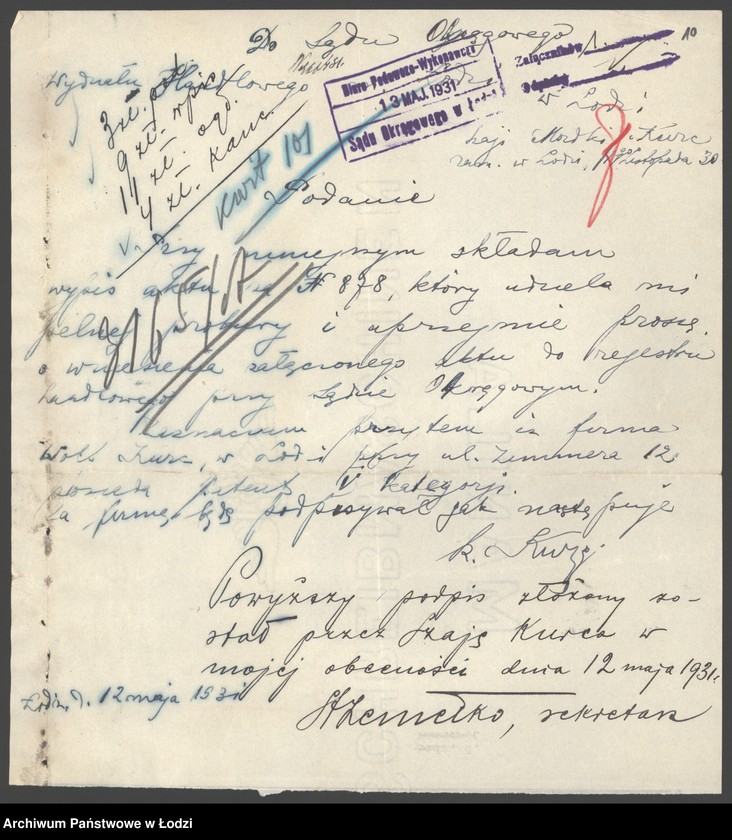 Do Sądu Okręgowego
10
Wydziału Handlowego
w Łodzi
Biuro Podawczo-Wykonawcze
13 MAJ. 1931
Sądu Okręgowego w Łodzi
Załączników
3 zł. pod.
9 zł. wpis
11 zł. ogł.
4 zł. kanc.
kwit 101
Mordki Kurc
zam. w Łodzi, Listopada 30
Podanie
Przy niniejszym składam
wypis aktu za № 878, który udziela mi
pełnej prokury i uprzejmie proszę
o wniesienie załączonego aktu do rejestru
handlowego przy Sądzie Okręgowym.
Zaznaczam przytem iż firma
Wolf Kurc, w Łodzi przy ul. Zimmera 12
posiada patent kategorji.
Za firmę będę podpisywał jak następuje
Powyższy podpis złożony zo-
stał przez Szaję Kurca w
mojej obecności dnia 12 maja 1931 r.
Łódź, d. 12 maja 1931
sekretarz
Archiwum Państwowe w Łodzi